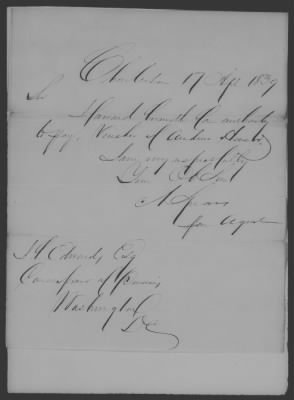 Charleston 17 Apr 1839
Sir
I forward herewith for authority
to pay, Voucher of Andrew
I am very respectfully
Your Ob Sert
Pen Agent
J L Edwards Esq
Commissioner of Pensions
Washington
D C